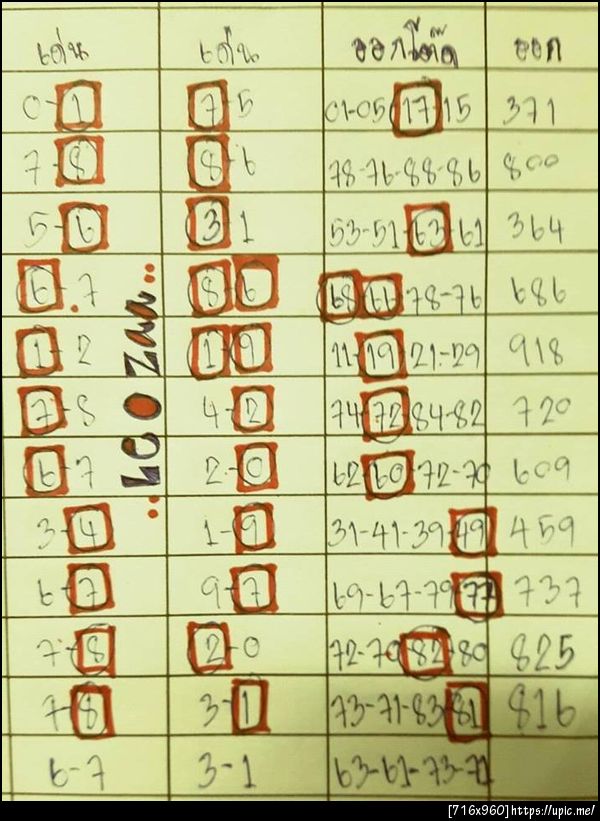 เด่น เด่น ออกรีต๊ด ออก
0-1 7-5 01-05-17-15 371
7-8 8-6 78-76-88-86 800
5-6 3-1 53-51-63-61 364
6-7 8-6 68-66-78-76 686
1-2 1-9 11-19-21-29 918
7-8 4-2 74-72-84-82 720
6-7 2-0 62-60-72-70 609
3-4 1-9 31-41-39-49 459
6-7 9-7 69-67-79-77 737
7-8 2-0 72-70-82-80 825
7-8 3-1 73-71-83-81 816
6-7 3-1 63-61-73-71
..Leozaa..
[716x960]https://upic.me/